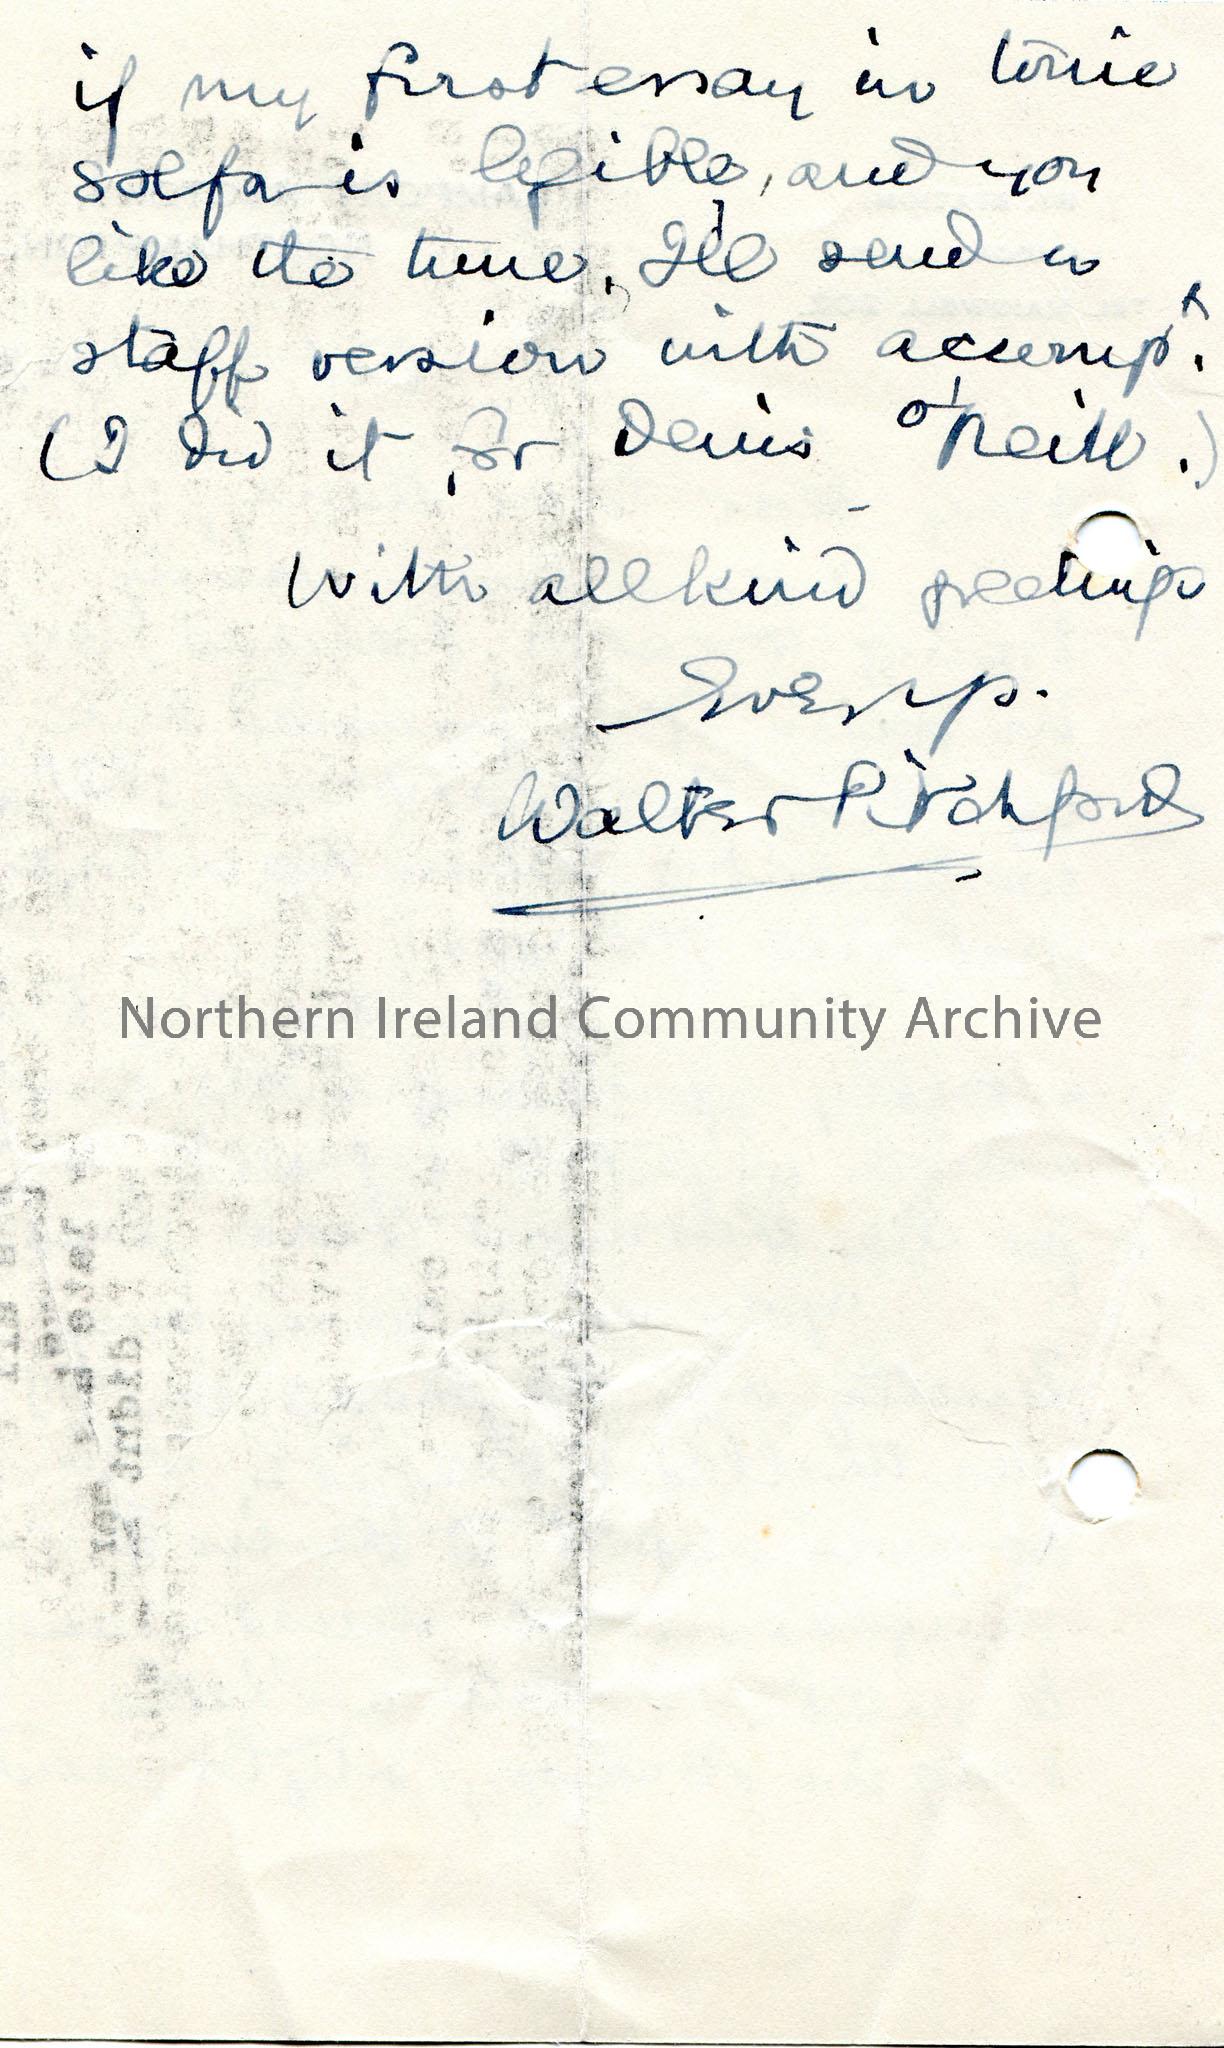 if my first essay in tonic
solfa is legible, and you
like the tune, I'll send a
staff version with accomp.t
(I did it for Denis O'Neill.)
With all kind greetings
Walter Pitchford
Northern Ireland Community Archive